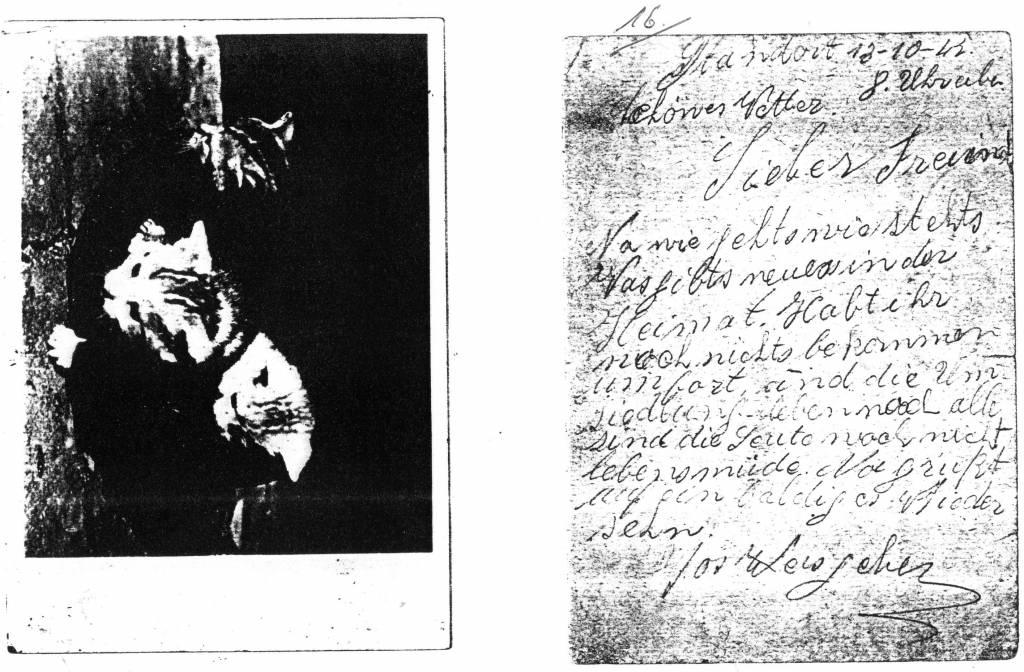 16.
Standort 13-10-42.
8. Uhr
schönes Wetter.
Lieber Freund
Na wie gehts wie stehts
Was gibts neues in der
Heimat. Habt ihr
noch nichts bekommen
um fort, und die Um-
siedlung. leben noch alle
sind die Leute noch nicht
lebensmüde. Na grüßt
auf ein baldiges Wieder
sehn.
Jos